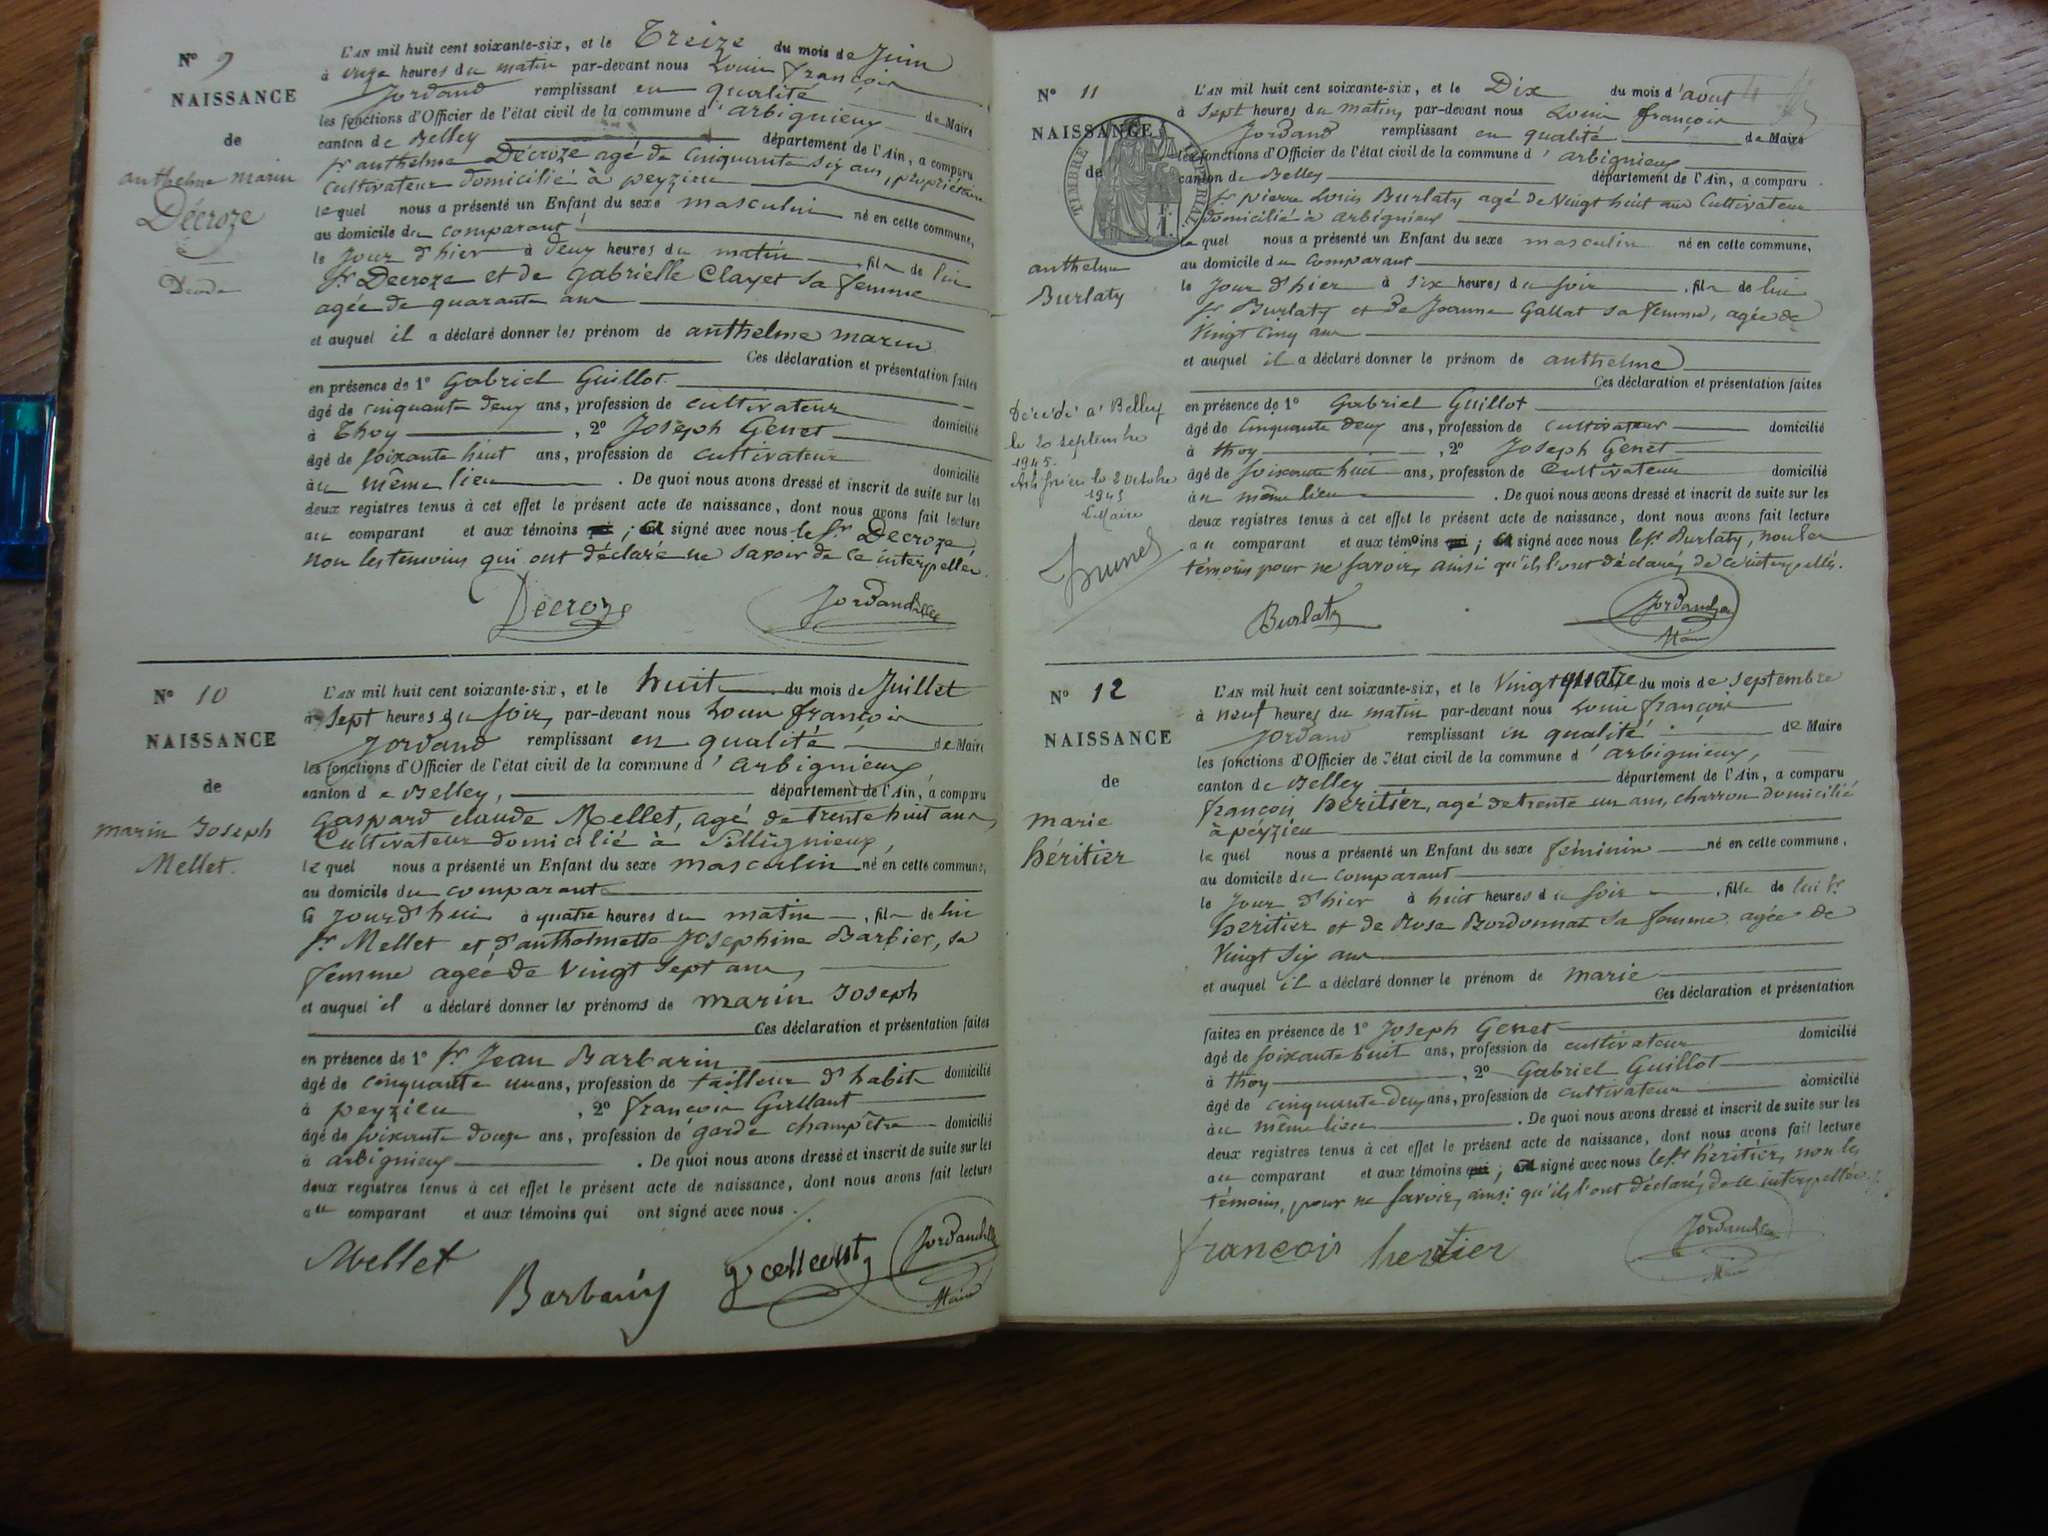 N° 9
NAISSANCE
de
anthelme marin
Décroze
L'AN mil huit cent soixante-six, et le Treize du mois de Juin
à onze heures du matin par-devant nous Louis françois
Jordand remplissant en qualité de Maire
les fonctions d'Officier de l'état civil de la commune d'arbignieux
canton de Belley département de l'Ain, a comparu
sr anthelme Décroze agé de Cinquante six ans, propriétaire
Cultivateur domicilié à peyzieu
lequel nous a présenté un Enfant du sexe masculin né en cette commune,
au domicile du comparant
le Jour d'hier à deux heures du matin, fils de lui
sr Decroze et de Gabrielle Clayet sa femme
agée de quarante ans
et auquel il a déclaré donner les prénom de anthelme marin
Ces déclaration et présentation faites
en présence de 1° Gabriel Guillot
âgé de cinquante deux ans, profession de cultivateur domicilié
à Thoy, 2° Joseph Genet
âgé de soixante huit ans, profession de cultivateur domicilié
au même lieu. De quoi nous avons dressé et inscrit de suite sur les
deux registres tenus à cet effet le présent acte de naissance, dont nous avons fait lecture
au comparant et aux témoins ; signé avec nous le sr Decroze,
non les temoins qui ont déclaré ne savoir de ce interpellés.
Decroze Jordand
N° 10
NAISSANCE
de
marin Joseph
Mellet.
L'AN mil huit cent soixante-six, et le huit du mois de Juillet
à sept heures du soir, par-devant nous Louis françois
Jordand remplissant en qualité de Maire
les fonctions d'Officier de l'état civil de la commune d'arbignieux
canton de Belley, département de l'Ain, a comparu
gaspard claude Mellet, agé de trente huit ans,
Cultivateur domicilié à Sillignieux,
lequel nous a présenté un Enfant du sexe masculin né en cette commune,
au domicile du comparant
le Jourd'hui à quatre heures du matin, fils de lui
sr Mellet et d'anthelmette Josephine Barbier, sa
femme agée de Vingt sept ans,
et auquel il a déclaré donner les prénoms de marin Joseph
Ces déclaration et présentation faites
en présence de 1° sr Jean Barbarin
âgé de cinquante un ans, profession de tailleur d'habits domicilié
à peyzieu, 2° françois
âgé de soixante douze ans, profession de garde champêtre domicilié
à arbignieux. De quoi nous avons dressé et inscrit de suite sur les
deux registres tenus à cet effet le présent acte de naissance, dont nous avons fait lecture
au comparant et aux témoins qui ont signé avec nous.
Mellet Barbarin Jordand
Maire
N° 11
NAISSANCE
de
TIMBRE IMPERIAL
anthelme
Burlaty
Décédé à Belley
le 20 septembre
1945.
le 2 octobre
1945
Le Maire
L'AN mil huit cent soixante-six, et le Dix du mois d'aout
à sept heures du matin, par-devant nous Louis françois
Jordand remplissant en qualité de Maire
les fonctions d'Officier de l'état civil de la commune d'arbignieux
canton de Belley département de l'Ain, a comparu
sr pierre Louis Burlaty agé de Vingt huit ans Cultivateur
domicilié à arbignieux
lequel nous a présenté un Enfant du sexe masculin né en cette commune,
au domicile du comparant
le Jour d'hier à six heures du soir, fils de lui
sr Burlaty et de Jeanne Gallat sa femme, agée de
Vingt cinq ans
et auquel il a déclaré donner le prénom de anthelme
Ces déclaration et présentation faites
en présence de 1° Gabriel Guillot
âgé de Cinquante deux ans, profession de cultivateur domicilié
à thoy, 2° Joseph Genet
âgé de soixante huit ans, profession de Cultivateur domicilié
au même lieu. De quoi nous avons dressé et inscrit de suite sur les
deux registres tenus à cet effet le présent acte de naissance, dont nous avons fait lecture
au comparant et aux témoins ; signé avec nous le sr Burlaty, non les
témoins pour ne savoir, ainsi qu'ils l'ont déclaré, de ce interpellés.
Burlaty Jordand
Maire
N° 12
NAISSANCE
de
marie
héritier
L'AN mil huit cent soixante-six, et le Vingt quatre du mois de septembre
à neuf heures du matin par-devant nous Louis françois
Jordand remplissant en qualité de Maire
les fonctions d'Officier de l'état civil de la commune d'arbignieux,
canton de Belley département de l'Ain, a comparu
françois héritier, agé de trente un ans, charron domicilié
à peyzieu
lequel nous a présenté un Enfant du sexe féminin né en cette commune,
au domicile du comparant
le Jour d'hier à huit heures du soir, fille de lui sr
heritier et de Rose Bordonnat sa femme agée de
Vingt six ans
et auquel il a déclaré donner le prénom de marie
Ces déclaration et présentation
faites en présence de 1° Joseph Genet
âgé de soixante huit ans, profession de cultivateur domicilié
à thoy, 2° Gabriel Guillot
âgé de cinquante deux ans, profession de cultivateur domicilié
au même lieu. De quoi nous avons dressé et inscrit de suite sur les
deux registres tenus à cet effet le présent acte de naissance, dont nous avons fait lecture
au comparant et aux témoins ; signé avec nous le sr héritier, non les
témoins, pour ne savoir, ainsi qu'ils l'ont déclaré, de ce interpellés.
francois heritier Jordand
Maire